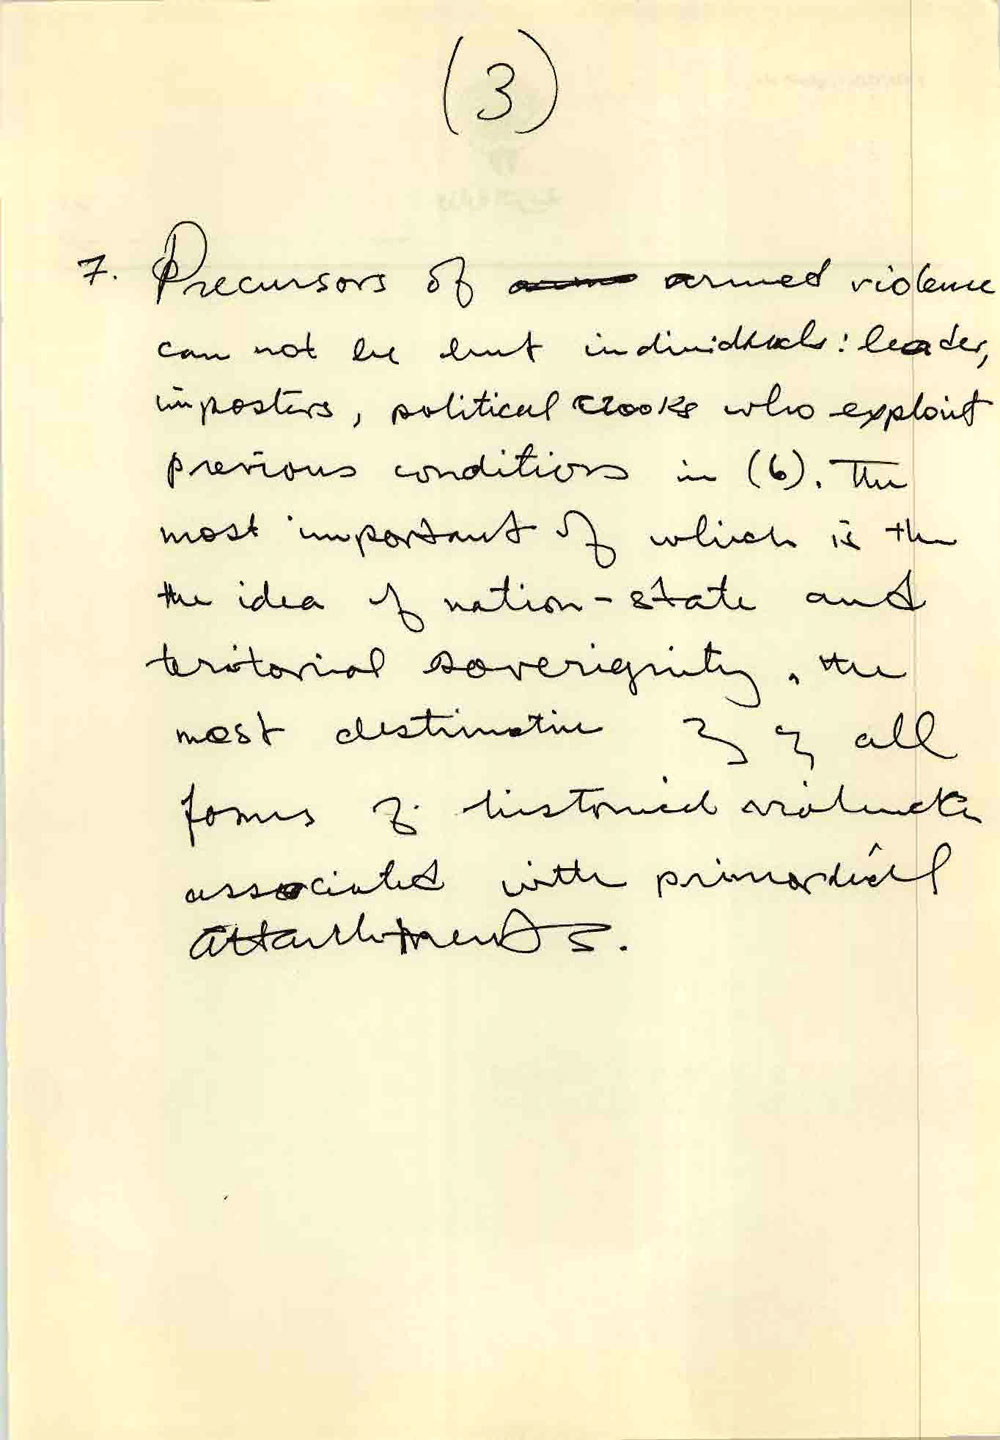 (3)
7. Precursors of armed violence
can not be but individuals: leader,
imposters, political crooks who exploit
previous conditions in (6). The
most important of which is the
the idea of nation-state and
teritorial soverignity, the
most of all
forms of historical
associated with primordial
attachments.